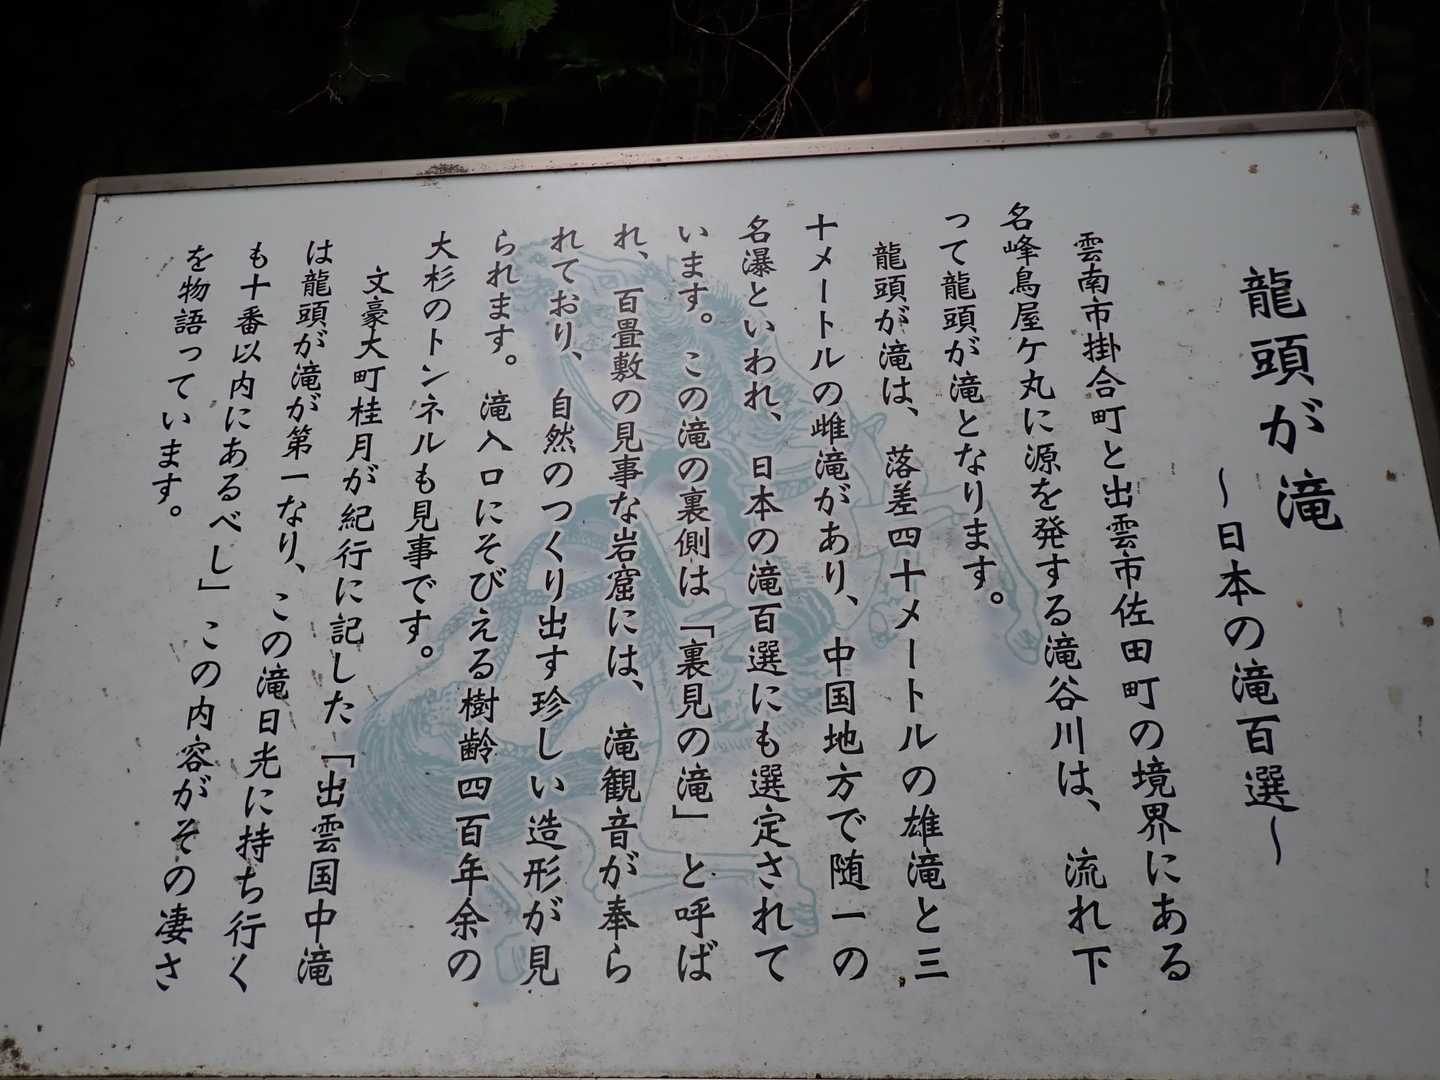 龍頭が滝
～日本の滝百選～
雲南市掛合町と出雲市佐田町の境界にある
名峰鳥屋ケ丸に源を発する滝谷川は、流れ下
って龍頭が滝となります。
龍頭が滝は、落差四十メートルの雄滝と三
十メートルの雌滝があり、中国地方で随一の
名瀑といわれ、日本の滝百選にも選定されて
います。この滝の裏側は「裏見の滝」と呼ば
れ、百畳敷の見事な岩窟には、滝観音が奉ら
れており、自然のつくり出す珍しい造形が見
られます。滝入口にそびえる樹齢四百年余の
大杉のトンネルも見事です。
文豪大町桂月が紀行に記した「出雲国中滝
は龍頭が滝が第一なり、この滝日光に持ち行く
も十番以内にあるべし」この内容がその凄さ
を物語っています。